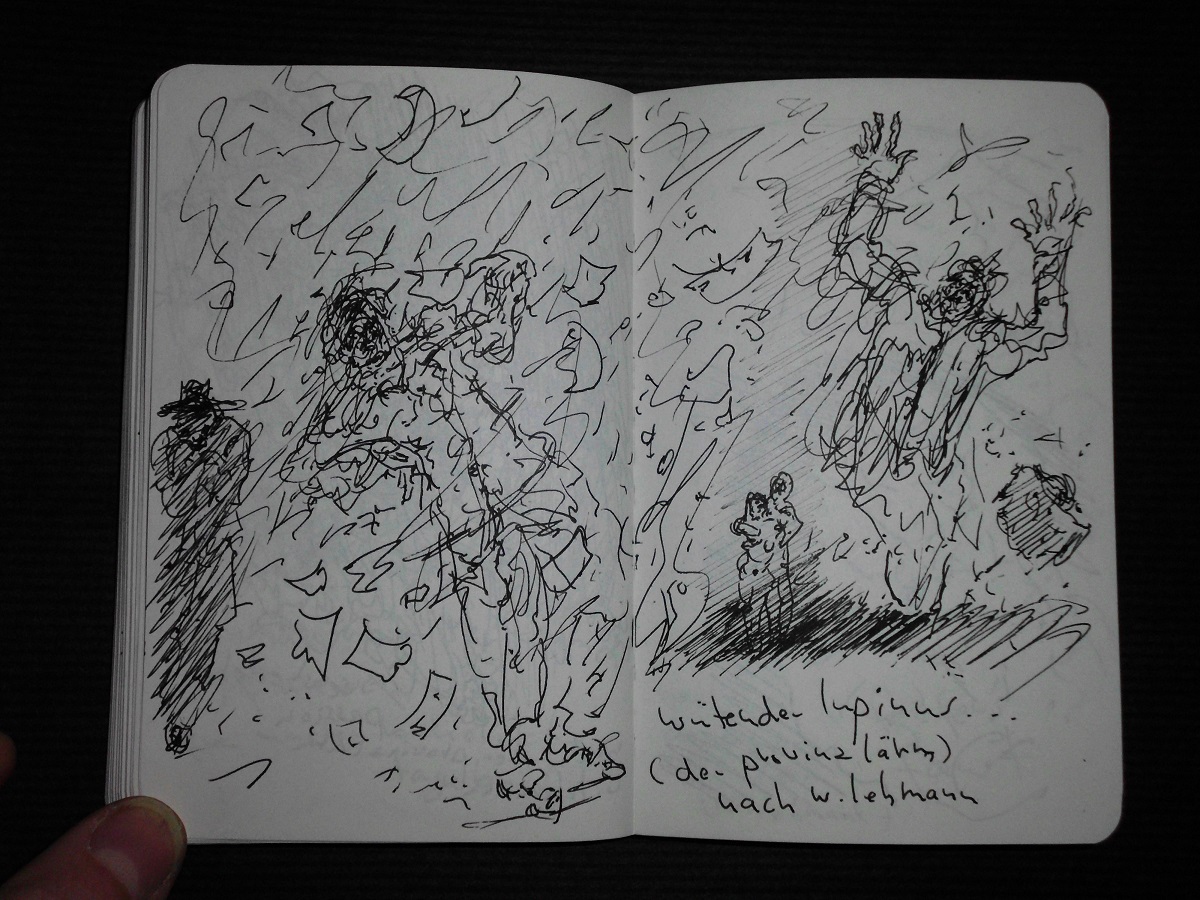 wütender lupinus...
(der provinzlärm)
nach w. lehmann